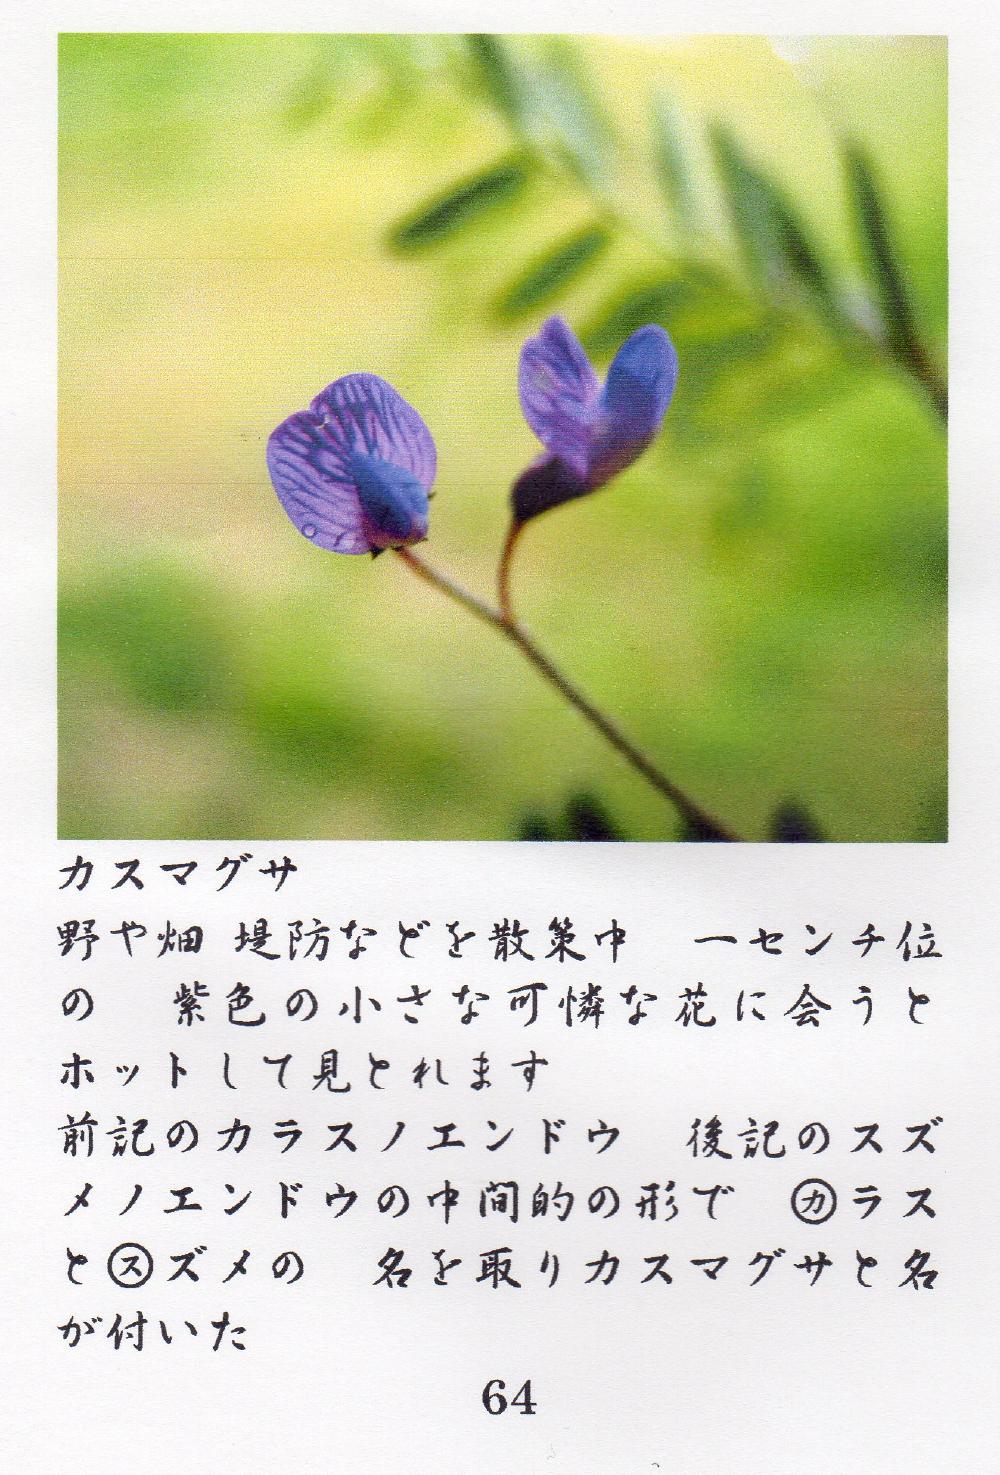 カスマグサ
野や畑 堤防などを散策中　一センチ位
の　紫色の小さな可憐な花に会うと
ホットして見とれます
前記のカラスノエンドウ　後記のスズ
メノエンドウの中間的の形で　㋕ラス
と㋜ズメの　名を取りカスマグサと名
が付いた
64